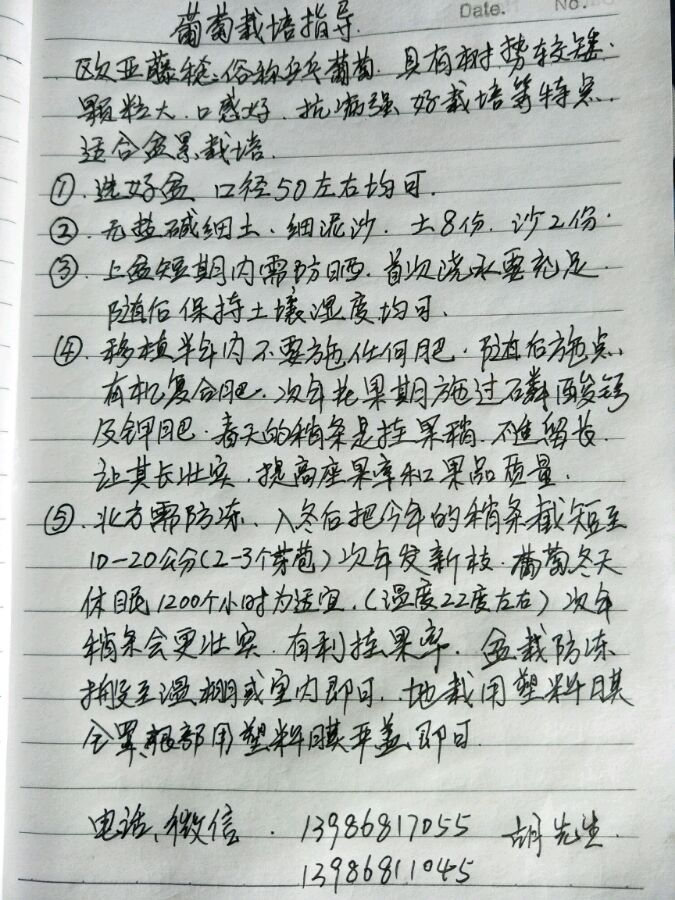 Date. No.
葡萄栽培指导.
欧亚藤稔:俗称乒乓葡萄. 具有树势较矮.
颗粒大. 口感好. 抗病强. 好栽培等特点.
适合盆景栽培.
①. 选好盆 口径50左右均可.
②. 无盐碱细土. 细泥沙. 土8份. 沙2份.
③. 上盆短期内需防晒. 首次浇水要充足.
随后保持土壤湿度均可.
④. 移植半年内不要施任何肥. 随后施点
有机复合肥. 次年花果期施过磷酸钙
及钾肥. 春天的稍条是挂果稍. 不准留长.
让其长壮实. 提高座果率和果品质量.
⑤. 北方需防冻. 入冬后把今年的稍条截短至
10-20公分(2-3个芽苞)次年发新枝. 葡萄冬天
休眠1200个小时为适宜. (温度22度左右)次年
稍条会更壮实. 有利挂果率. 盆栽防冻
搬至温棚或室内即可. 地栽用塑料膜
全罩,根部用塑料膜平盖即可.
电话、微信. 13986817055 胡先生.
13986811045